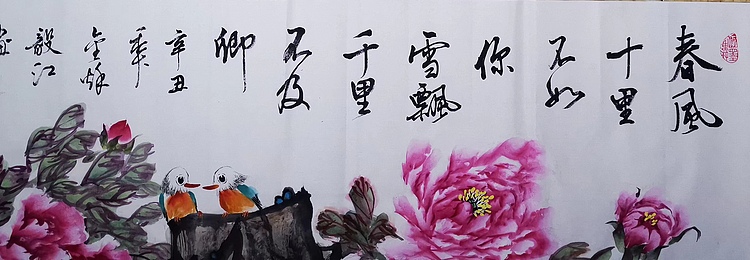 春風
十里
不如
你
雪飄
千里
不及
卿
辛丑
年
金秋
毅江